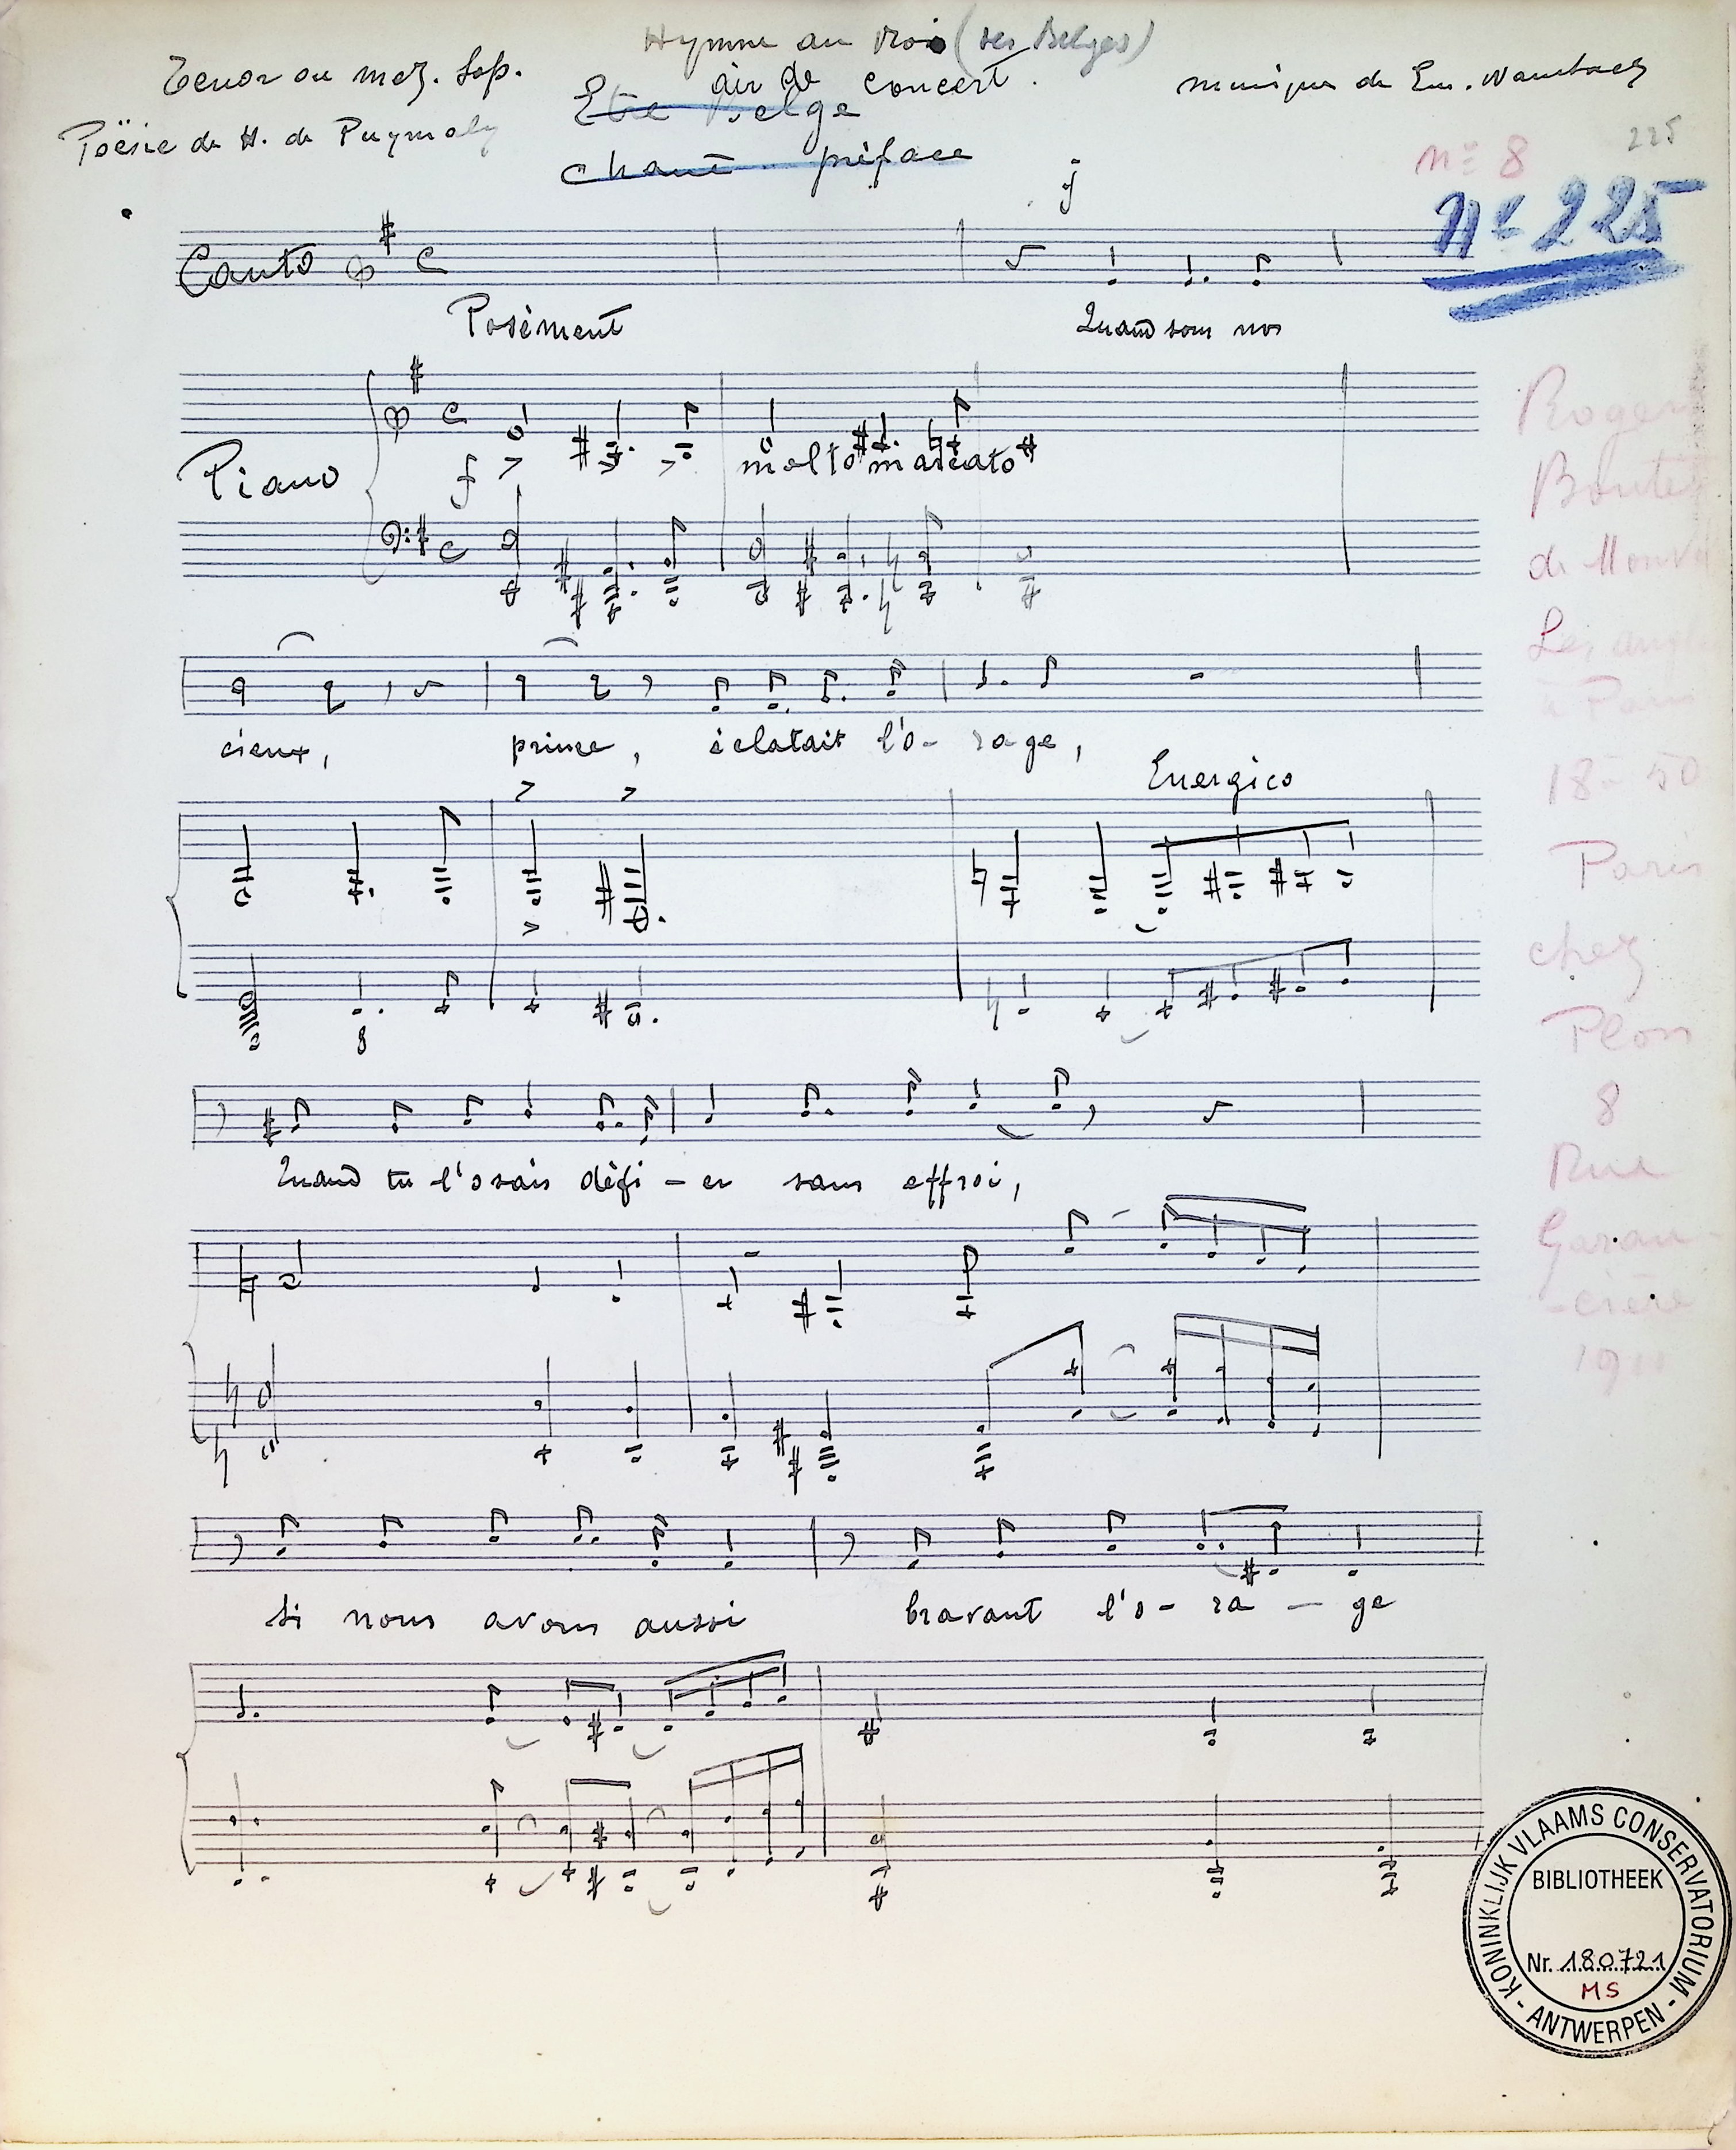 Hymne au Roi (des Belges)
Tenor ou mez. Sop.
air de concert.
musique de Em. Wambach
Etre Belge
Poësie de H. de Puymaly
chant préface
225
n° 8
N° 225
Canto
Posément
Quand sous nos
Piano
f
molto marcato
cieux, prince, éclatait l'o- rage,
Energico
8
Quand tu l'osais défi - er sans effroi,
Si nous avons aussi bravant l'o - ra - ge
Roger
de
à Paris
18 - 50
Paris
chez
Plon
8
Rue
Garan-
-cière
KONINKLIJK VLAAMS CONSERVATORIUM - ANTWERPEN -
BIBLIOTHEEK
Nr. 180721
MS